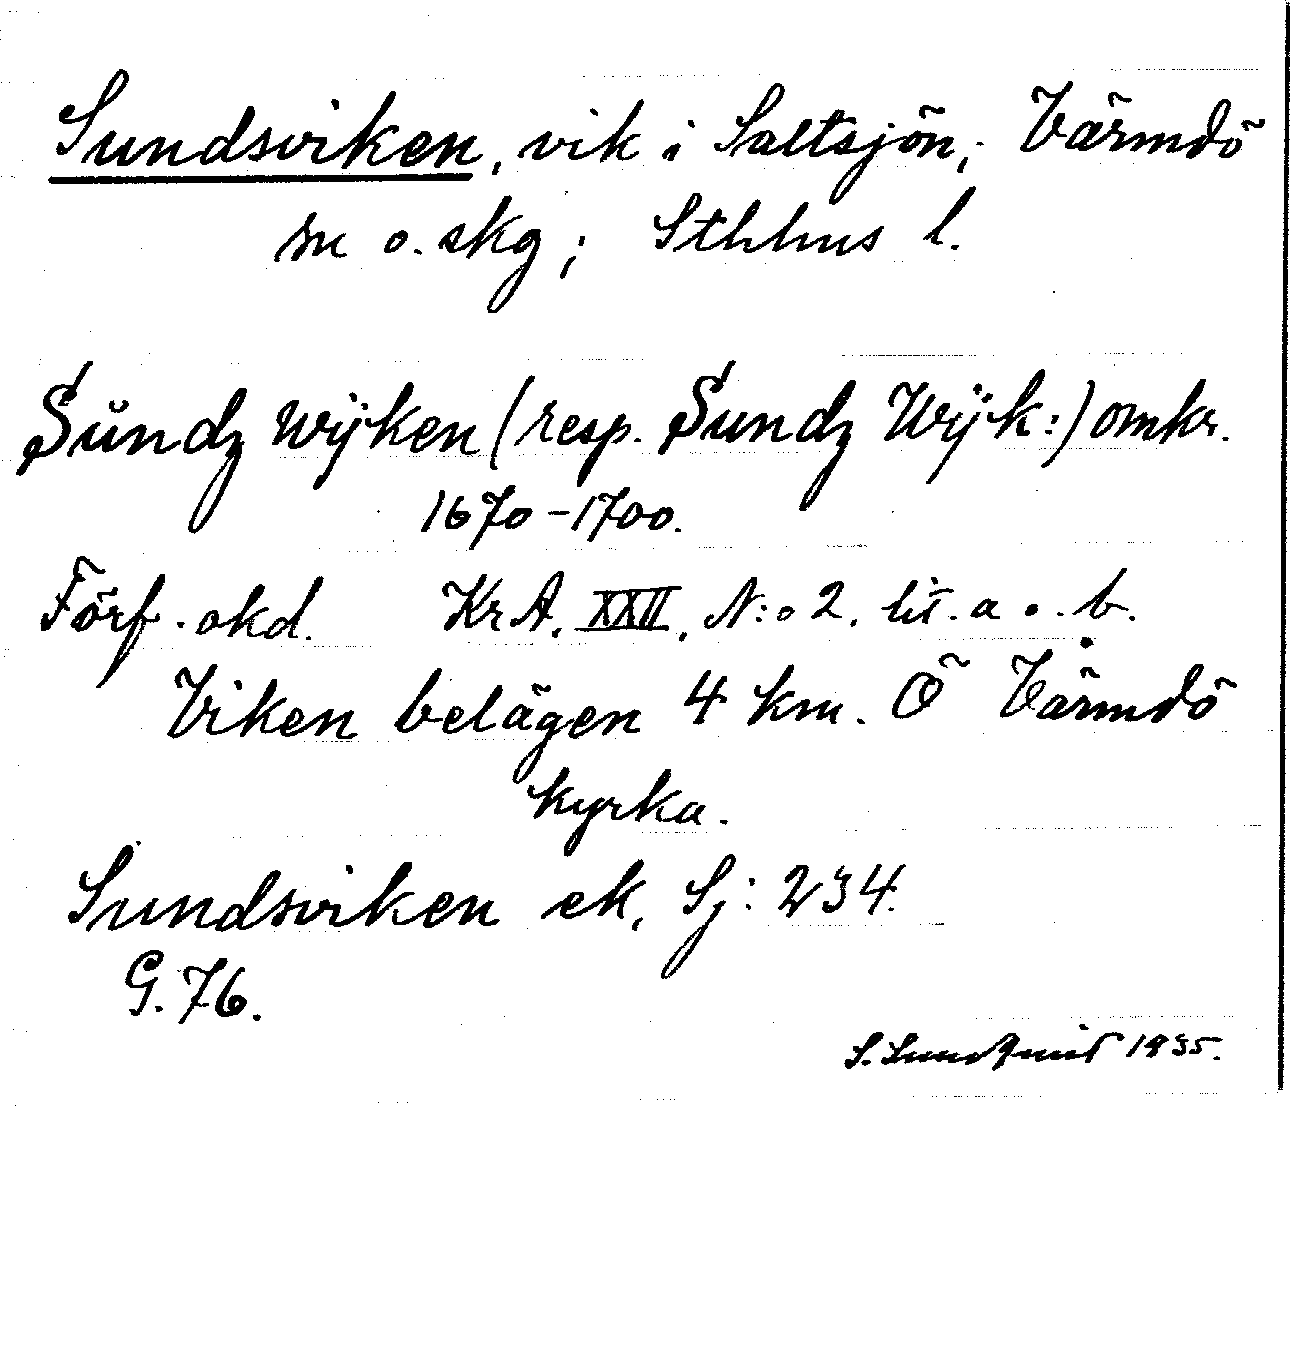 Sundsviken, vik i Saltsjön, Värmdö
sn o. skg; Sthlms l.
Sŭndz wijken (resp. Sundz Wijk:) omkr.
1670-1700.
Förf. okd. KrA. XXII, N:o 2. lit. a o. b.
Viken belägen 4 km. Ö Värmdö
kyrka.
Sundsviken ek. Sj: 234.
G. 76.
S. Sundqvist 1935.